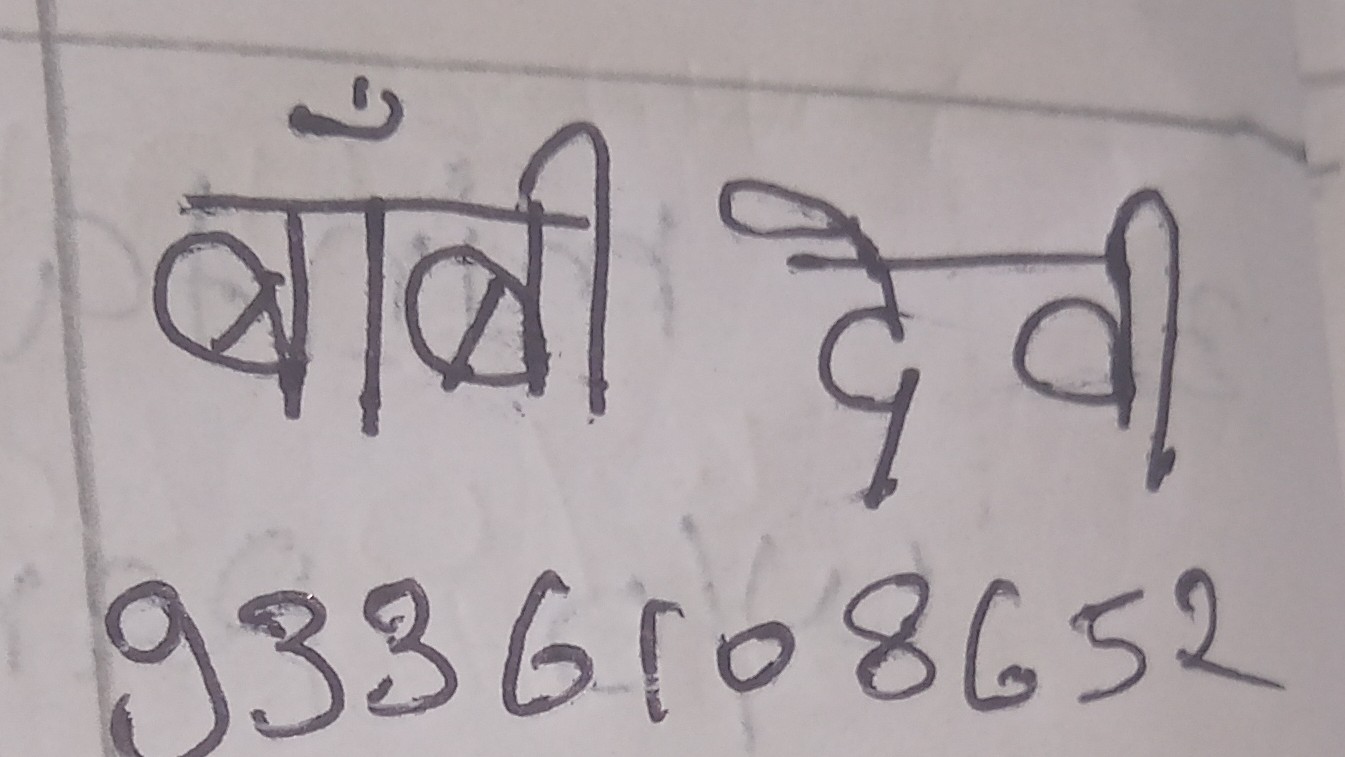 बाँबी देवी
9336108652